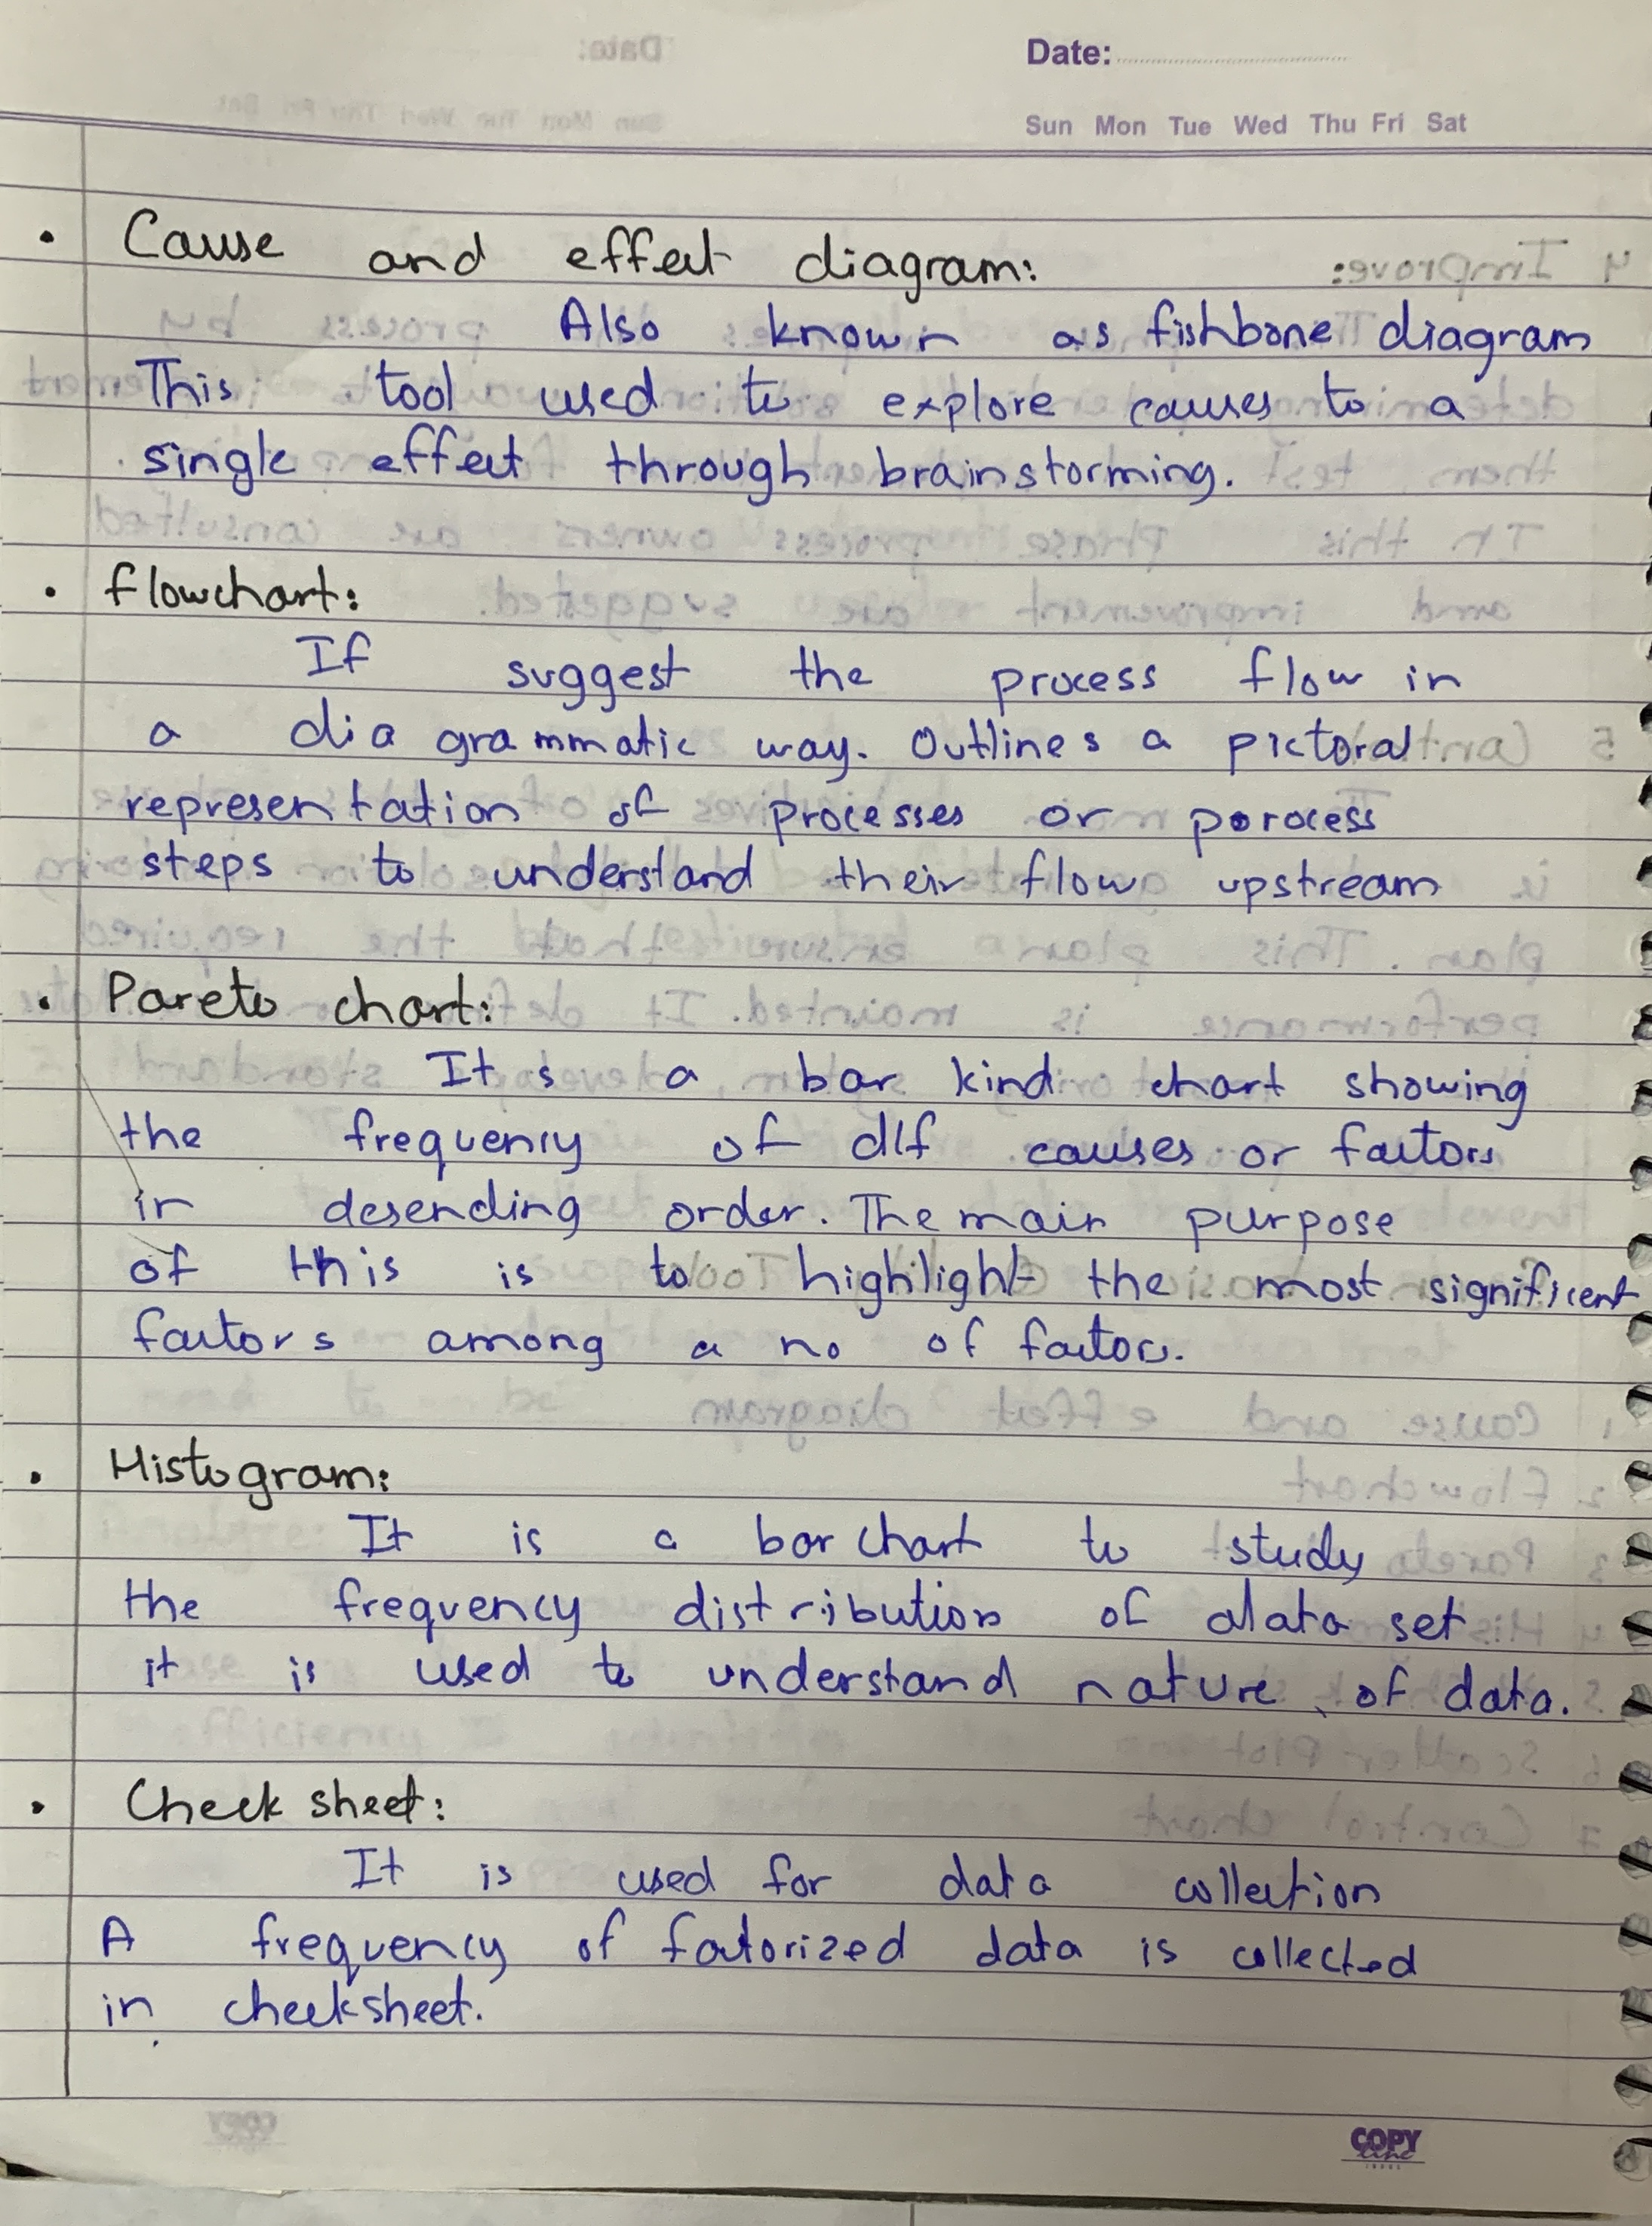 Date:
Sun Mon Tue Wed Thu Fri Sat
• Cause and effect diagram:
Also known as fishbone diagram
This tool used to explore causes to a
single effect through brainstorming.
• flowchart:
If suggest the process flow in
a diagrammatic way. Outlines a pictoral
representation of processes or porocess
steps to understand their flow upstream
• Pareto chart:
It s a bar kind chart showing
the frequency of dif causes or factors
in desending order. The main purpose
of this is to highlight the most significent
factors among a no of factors.
• Histogram:
It is a bar chart to study
the frequency distribution of data set
it is used to understand nature of data.
• Check sheet:
It is used for data collection
A frequency of factorized data is collected
in checksheet.
COPY
line